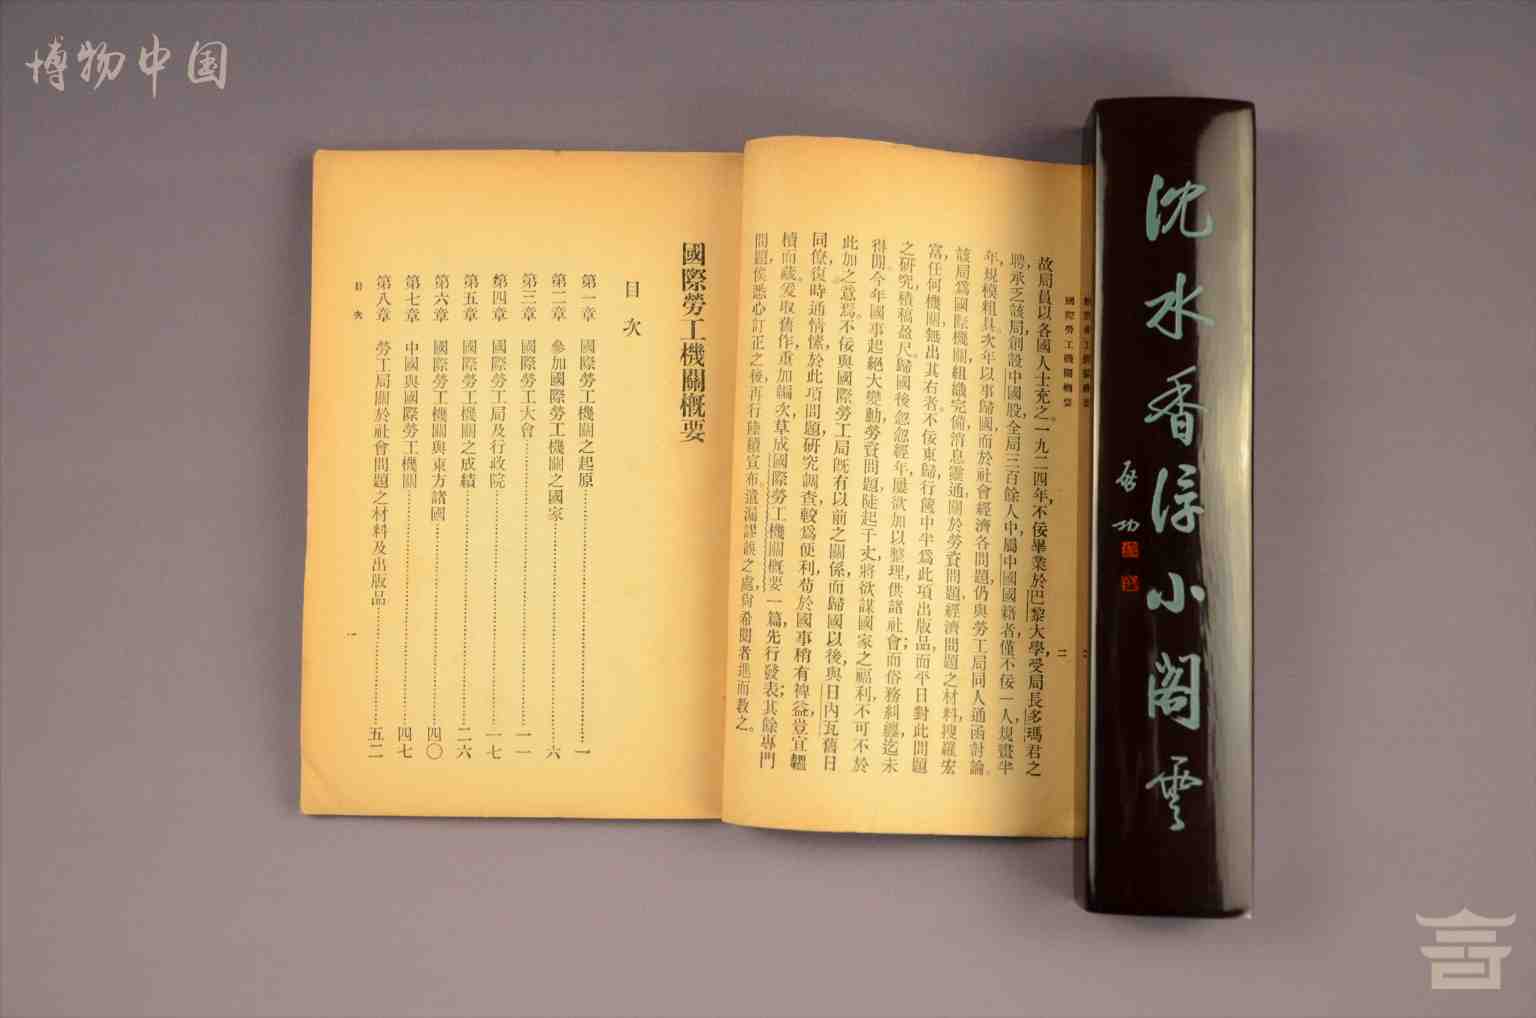 博物中国
國際勞工機關概要
二
故局員以各國人士充之。一九二四年,不佞畢業於巴黎大學,受局長多瑪君之
聘,承乏該局,創設中國股,全局三百餘人中,屬中國國籍者,僅不佞一人,規畫半
年,規模粗具。次年以事歸國,而於社會經濟各問題,仍與勞工局同人通函討論。
該局爲國際機關,組織完備,消息靈通,關於勞資問題經濟問題之材料,搜羅宏
富,任何機關,無出其右者。不佞東歸,行篋中半爲此項出版品,而平日對此問題
之研究,積稿盈尺。歸國後忽忽經年,屢欲加以整理,供諸社會;而俗務糾纏,迄未
得閒。今年國事起絕大變動,勞資問題,陡起千丈,將欲謀國家之福利,不可不於
此加之意焉。不佞與國際勞工局既有以前之關係,而歸國以後,與日內瓦舊日
同僚,復時通情愫,於此項問題研究調查,較爲便利,苟於國事稍有裨益,豈宜韞
櫝而藏。爰取舊作,重加編次,草成國際勞工機關概要一篇,先行發表;其餘專門
問題,俟悉心訂正之後,再行陸續宣布。遺漏謬誤之處,尙希閱者進而教之。
國際勞工機關概要
目次
第一章 國際勞工機關之起原 一
第二章 參加國際勞工機關之國家 六
第三章 國際勞工大會 一一
第四章 國際勞工局及行政院 一七
第五章 國際勞工機關之成績 二六
第六章 國際勞工機關與東方諸國 四〇
第七章 中國與國際勞工機關 四七
第八章 勞工局關於社會問題之材料及出版品 五二
目次
一
沈水香浮小阁云
啟功